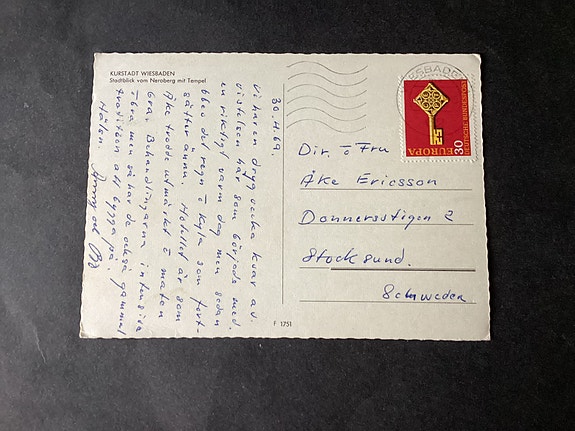 KURSTADT WIESBADEN
Stadtblick vom Neroberg mit Tempel
30.4.69.
Vi ha en dryg vecka kvar av
vistelsen här som började med
en riktigt varm dag men sedan
blev det regn o kyla som fort-
sätter ännu. Hotellet är som
Åke trodde utmärkt o maten
bra. Behandlingarna intensiva
o bra men så har de också gammal
tradition att bygga på.
Hälsn.
F 1751
WIESBADEN
30
EUROPA
DEUTSCHE BUNDESPOST
Dir. o Fru
Åke Ericsson
Donnersstigen 2
Stocksund.
Schweden